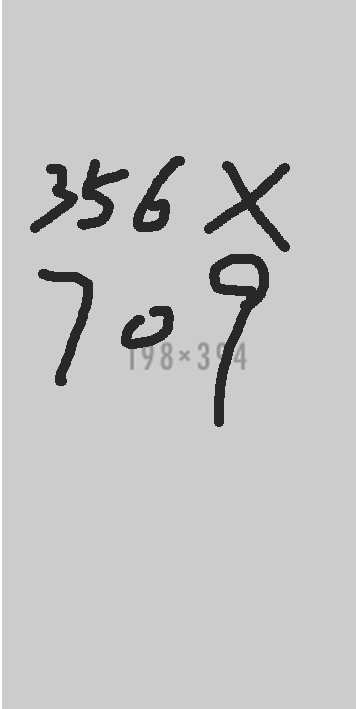 356 X
709
198×394